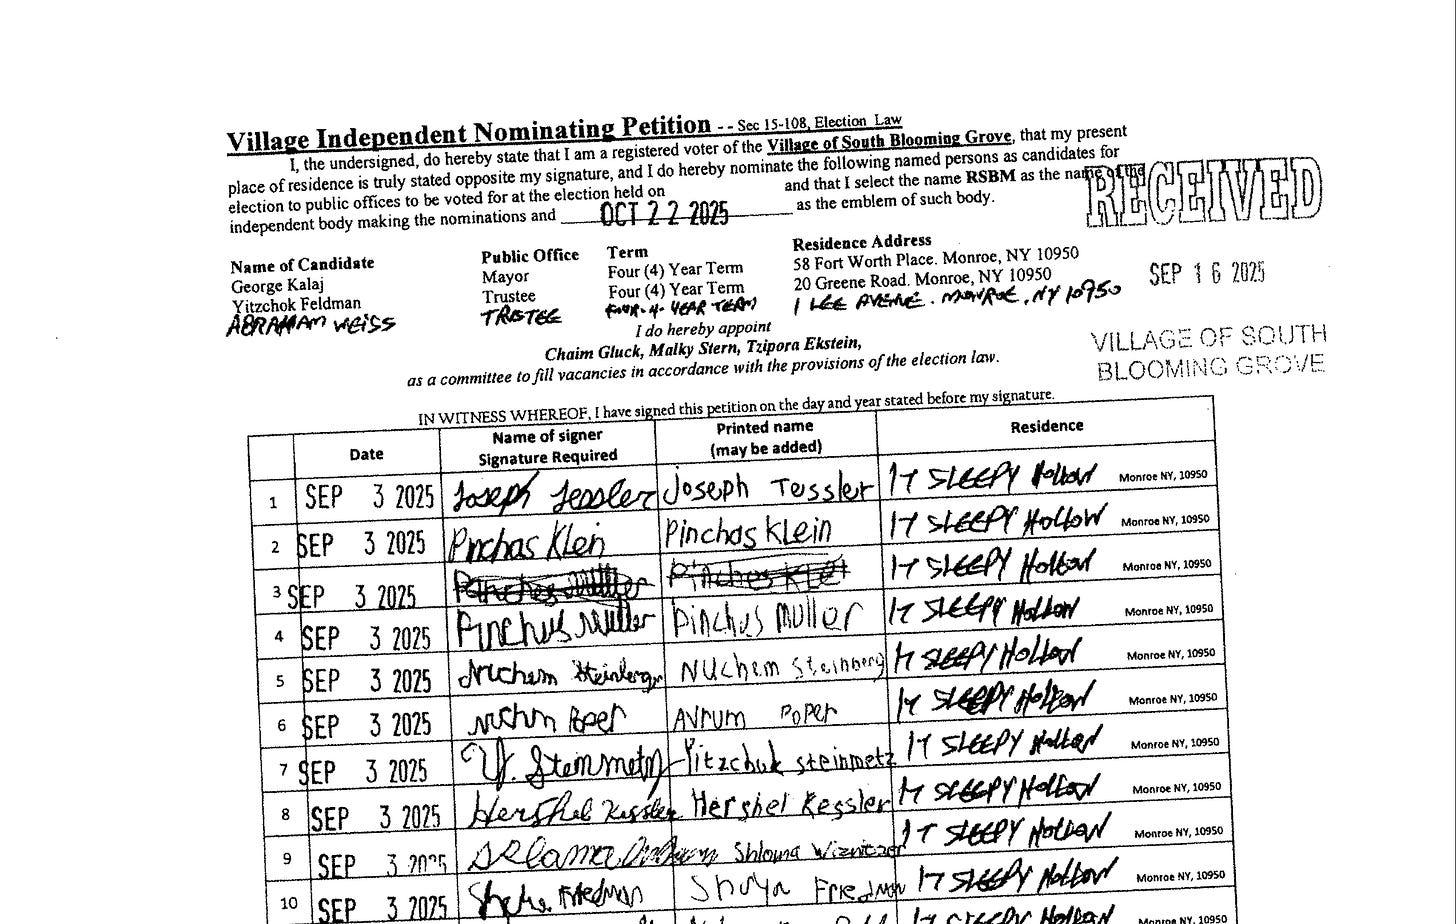 Village Independent Nominating Petition - - Sec 15-108, Election Law
I, the undersigned, do hereby state that I am a registered voter of the Village of South Blooming Grove, that my present
place of residence is truly stated opposite my signature, and I do hereby nominate the following named persons as candidates for
election to public offices to be voted for at the election held on and that I select the name RSBM as the name of the
independent body making the nominations and OCT 22 2025 as the emblem of such body.
RECEIVED
SEP 16 2025
VILLAGE OF SOUTH
BLOOMING GROVE
Name of Candidate Public Office Term Residence Address
George Kalaj Mayor Four (4) Year Term 58 Fort Worth Place. Monroe, NY 10950
Yitzchok Feldman Trustee Four (4) Year Term 20 Greene Road. Monroe, NY 10950
ABRAHAM WEISS TRSTEE FOUR-4-YEAR TERM 1 LEE AVENE. MONROE, NY 10950
I do hereby appoint
Chaim Gluck, Malky Stern, Tzipora Ekstein,
as a committee to fill vacancies in accordance with the provisions of the election law.
IN WITNESS WHEREOF, I have signed this petition on the day and year stated before my signature.
Date Name of signer Signature Required Printed name (may be added) Residence
1 SEP 3 2025 Joseph Tessler Joseph Tessler 17 SLEEPY Hollow Monroe NY, 10950
2 SEP 3 2025 Pinchas Klein Pinchas Klein 17 SLEEPY Hollow Monroe NY, 10950
3 SEP 3 2025 17 SLEEPY Hollow Monroe NY, 10950
4 SEP 3 2025 Pinchus Muller Pinchus Muller 17 SLEEPY Hollow Monroe NY, 10950
5 SEP 3 2025 Nuchem Steinberg Nuchem Steinberg 17 SLEEPY Hollow Monroe NY, 10950
6 SEP 3 2025 Avrum Poper 17 SLEEPY Hollow Monroe NY, 10950
7 SEP 3 2025 Y. Steinmetz Yitzchuk Steinmetz 17 SLEEPY Hollow Monroe NY, 10950
8 SEP 3 2025 Hershel Kessler Hershel Kessler 17 SLEEPY Hollow Monroe NY, 10950
9 SEP 3 2025 Shloma Wiznitzer 17 SLEEPY Hollow Monroe NY, 10950
10 SEP 3 2025 Friedman Shuya Friedman 17 SLEEPY Hollow Monroe NY, 10950